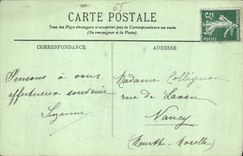 65
CARTE POSTALE
Tous les Pays étrangers n'acceptent pas la Correspondance au recto
(Se renseigner à la Poste)
CORRESPONDANCE
ADRESSE
Pensons à vous
affectueux souvenir
Suzanne
Madame Collignon
rue de Laxou
Nancy
Meurthe-Moselle
5